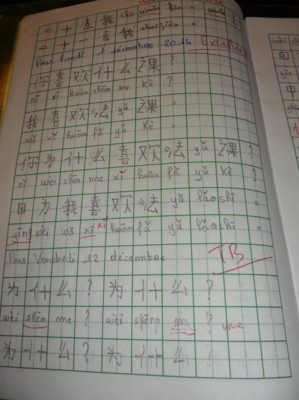 Pour Lundi 1 décembre
你 喜 欢 什 么 课 ?
nǐ xǐ huān shén me kè ?
我 喜 欢 法 yǔ 课 。
wǒ xǐ huān fǎ yǔ kè 。
你 为 什 么 喜 欢 法 yǔ 课 ?
nǐ wèi shén me xǐ huān fǎ yǔ kè ?
因 为 我 喜 欢 法 yǔ lǎo shī 。
yīng wèi wǒ xǐ huān fǎ yǔ lǎo shī 。
Pour Vendredi 12 décembre TB
为 什 么 ? 为 什 么 ?
wèi shén me ? wèi shén ? me
为 什 么 ? 为 什 么 ?